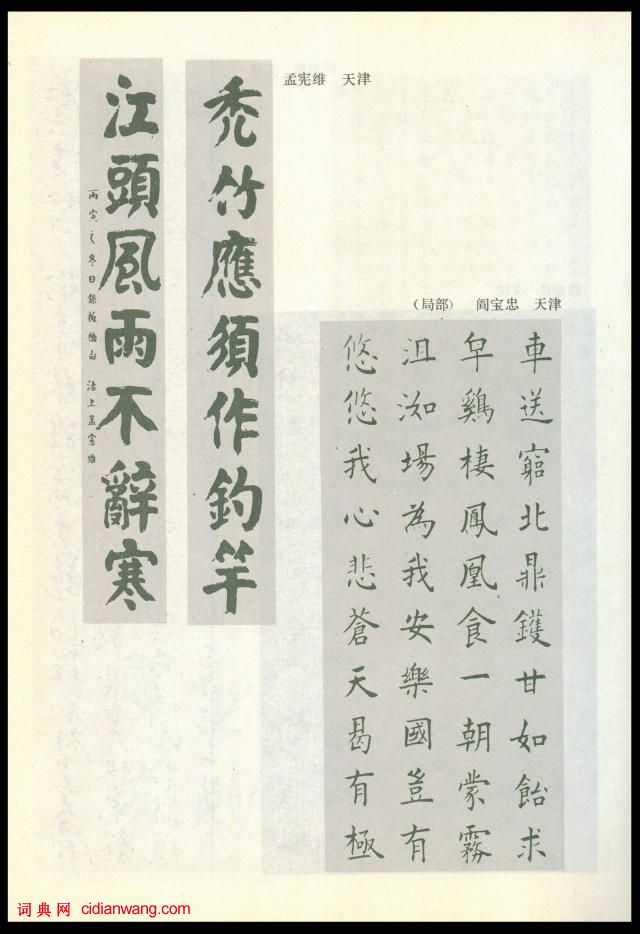 孟宪维 天津
秃竹應須作釣竿
江頭風雨不辭寒
丙寅之冬日錄板橋句 沽上孟憲維
（局部） 阎宝忠 天津
車送窮北鼎鑊甘如飴求
皁鷄棲鳳凰食一朝蒙霧
沮洳場為我安樂國豈有
悠悠我心悲蒼天曷有極
词典网 cidianwang.com